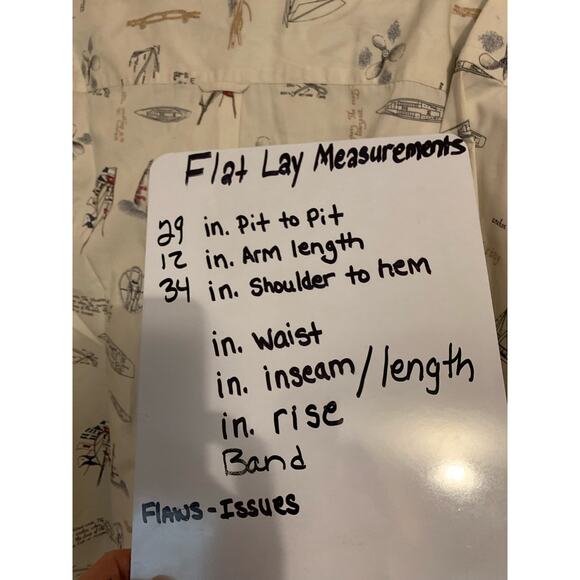 Flat Lay Measurements
29 in. Pit to Pit
12 in. Arm length
34 in. Shoulder to hem
in. Waist
in. inseam/length
in. rise
Band
Flaws-Issues